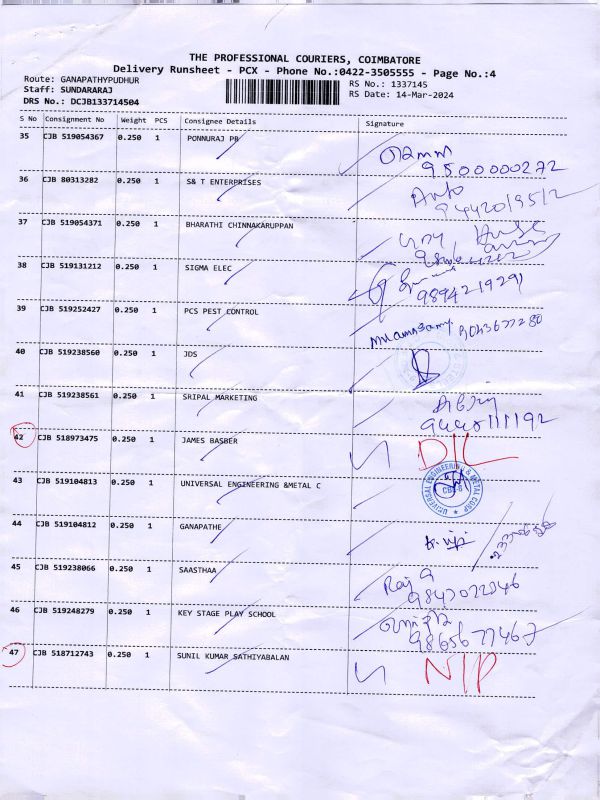 THE PROFESSIONAL COURIERS, COIMBATORE
Delivery Runsheet - PCX - Phone No.:0422-3505555 - Page No.:4
Route: GANAPATHYPUDHUR
RS No.: 1337145
Staff: SUNDARARAJ
RS Date: 14-Mar-2024
DRS No.: DCJB133714504
S No Consignment No Weight PCS Consignee Details Signature
35 CJB 519054367 0.250 1 PONNURAJ PB
9500000272
36 CJB 80313282 0.250 1 S& T ENTERPRISES
9442019512
37 CJB 519054371 0.250 1 BHARATHI CHINNAKARUPPAN
38 CJB 519131212 0.250 1 SIGMA ELEC
9894219291
39 CJB 519252427 0.250 1 PCS PEST CONTROL
9043677280
40 CJB 519238560 0.250 1 JDS
41 CJB 519238561 0.250 1 SRIPAL MARKETING
42 CJB 518973475 0.250 1 JAMES BASBER
D/L
43 CJB 519104813 0.250 1 UNIVERSAL ENGINEERING &METAL C
UNIVERSAL ENGINEERING & METAL CORP
44 CJB 519104812 0.250 1 GANAPATHE
45 CJB 519238066 0.250 1 SAASTHAA
9843022346
46 CJB 519248279 0.250 1 KEY STAGE PLAY SCHOOL
9865677467
47 CJB 518712743 0.250 1 SUNIL KUMAR SATHIYABALAN
N/P